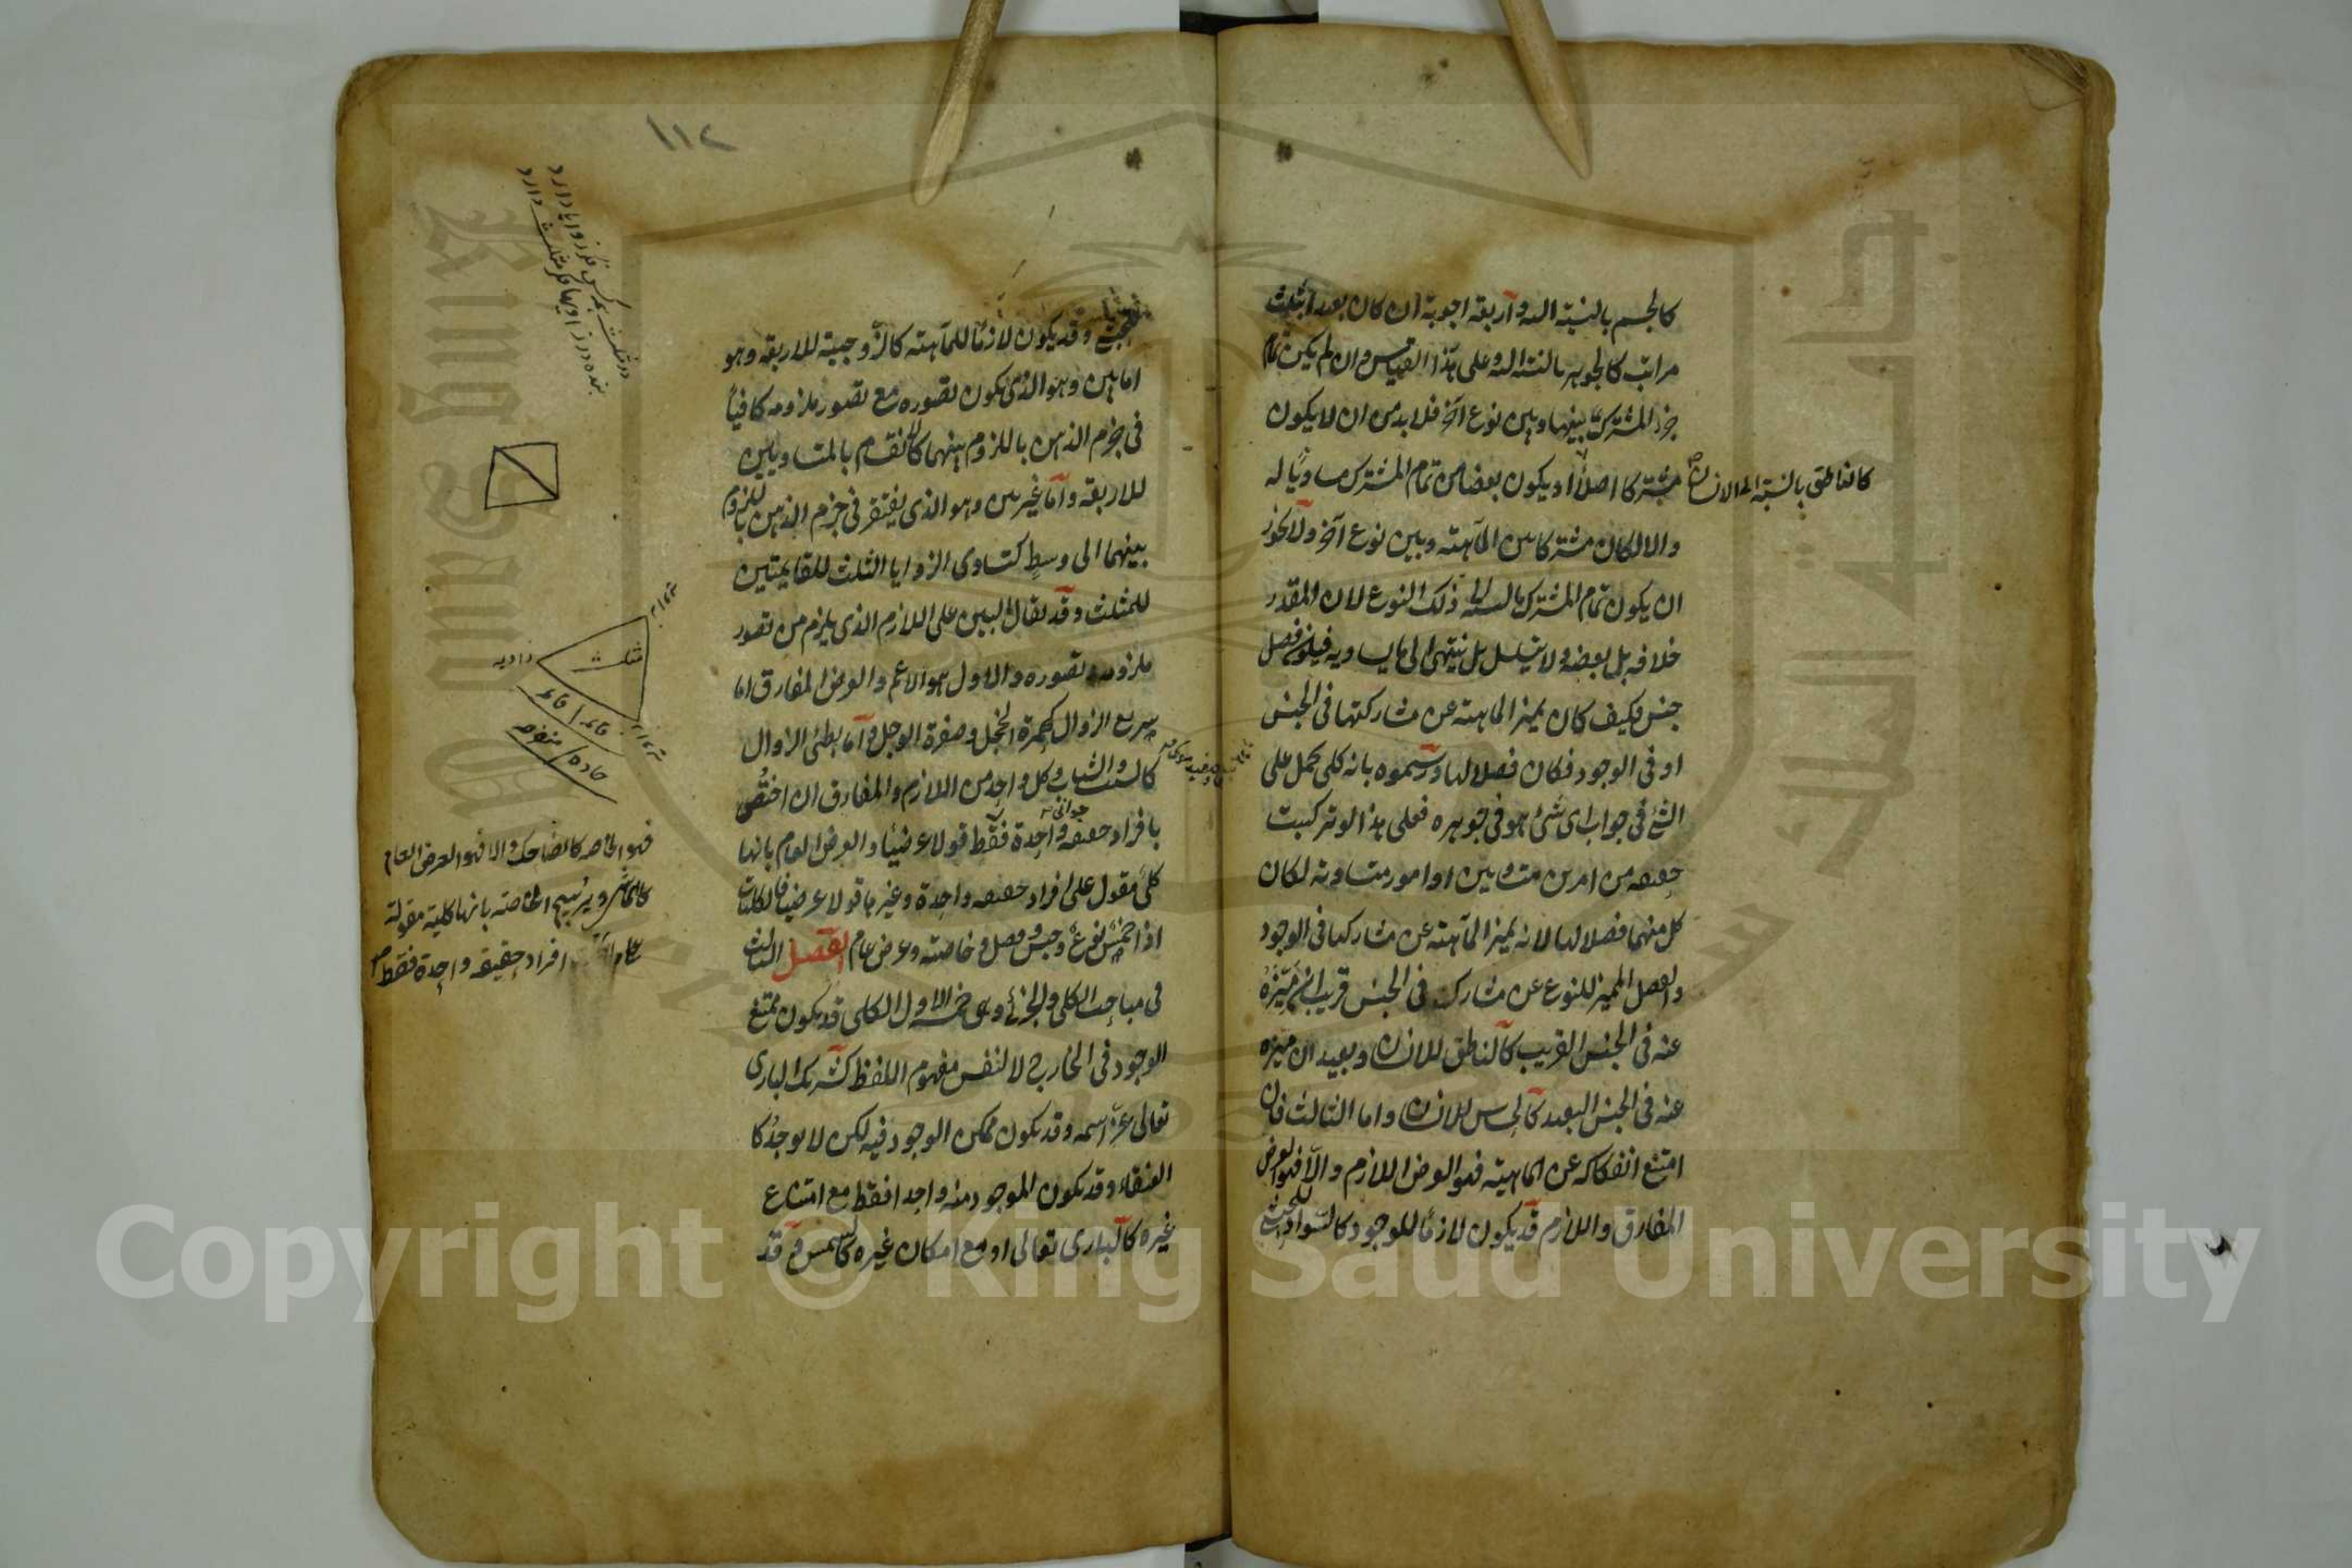 كالجسم بالنسبة اليه واربعة اجوبة ان كان بعدا بثلث
مراتب كالجوهر بالنسبة اليه وعلى هذا القياس وان لم يكن تمام
جزء المشترك بينها وبين نوع آخر فلا بد من ان لا يكون
مشتركا اصلا او يكون بعضا من تمام المشترك مساويا له
كالناطق بالنسبة الى الانسان
والا لكان مشتركا بين الماهية وبين نوع آخر ولا يجوز
ان يكون تمام المشترك بالنسبة الى ذلك النوع لان المقدر
خلافه بل بعضه ولا يتسلسل بل ينتهى الى ما يساويه فيكون فصل
جنس وكيف كان يميز الماهية عن مشاركتها فى الجنس
او فى الوجود فكان فصلا لها ورسموه بانه كلى يحمل على
الشئ فى جواب اى شئ هو فى جوهره فعلى هذا لو تركبت
حقيقة من امرين متساويين او امور متساوية لكان
كل منهما فصلا لها لانه يميز الماهية عن مشاركها فى الوجود
والفصل المميز للنوع عن مشاركه فى الجنس قريب ان ميزه
عنه فى الجنس القريب كالناطق للانسان وبعيد ان ميزه
عنه فى الجنس البعيد كالحساس للانسان واما الثالث فان
امتنع انفكاكه عن الماهية فهو العرض اللازم والا فهو العرض
المفارق واللازم قد يكون لازما للوجود كالسواد للحبشى
١١٢
وقد يكون لازما للماهية كالزوجية للاربعة وهو
اما بين وهو الذى يكون تصوره مع تصور ملزومه كافيا
فى جزم الذهن باللزوم بينهما كالانقسام بالمتساويين
للاربعة واما غير بين وهو الذى يفتقر فى جزم الذهن باللزوم
بينهما الى وسط كتساوى الزوايا الثلث للقايمتين
للمثلث وقد يقال البين على اللازم الذى يلزم من تصور
ملزومه تصوره والاول هو الاعم والعرض المفارق اما
سريع الزوال كحمرة الخجل وصفرة الوجل واما بطئ الزوال
كالشيب والشباب وكل واحد من اللازم والمفارق ان اختص
بافراد حقيقة واحدة فقط قولا عرضيا والعرض العام بانها
كلى مقول على افراد حقيقة واحدة وغيرها قولا عرضيا فالكليات
اذا خمس نوع وجنس وفصل وخاصة وعرض عام الفصل الثالث
فى مباحث الكلى والجزئى وهى خمسة الاول الكلى قد يكون ممتنع
الوجود فى الخارج لا لنفس مفهوم اللفظ كشريك البارى
تعالى عز اسمه وقد يكون ممكن الوجود فيه لكن لا يوجد كا
العنقاء وقد يكون الموجود منه واحدا فقط مع امتناع
غيره كالبارى تعالى او مع امكان غيره كالشمس وقد
مثلث
زاويه
قائمه
قائمه
حاده
منفرجه
فهو الخاصه كالضاحك والا فهو العرض العام
كالماشى ويرسم الخاصة بانها كلية مقولة
على افراد حقيقة واحدة فقط
Copyright © King Saud University